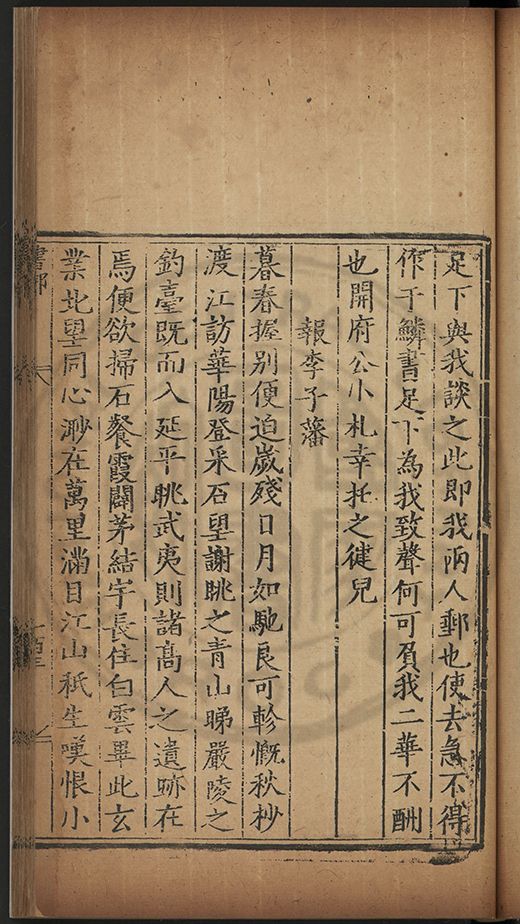 足下與我談之此即我兩人郵也使去急不得
作于鱗書足下為我致聲何可負我二華不酬
也開府公小札幸托之健兒
報李子藩
暮春握別便迫歲殘日月如馳良可軫慨秋杪
渡江訪華陽登采石望謝眺之青山睇嚴陵之
釣臺既而入延平眺武夷則諸高人之遺跡在
焉便欲掃石餐霞闢茅結宇長住白雲畢此玄
業北望同心渺在萬里滿目江山秖生嘆恨小
書部